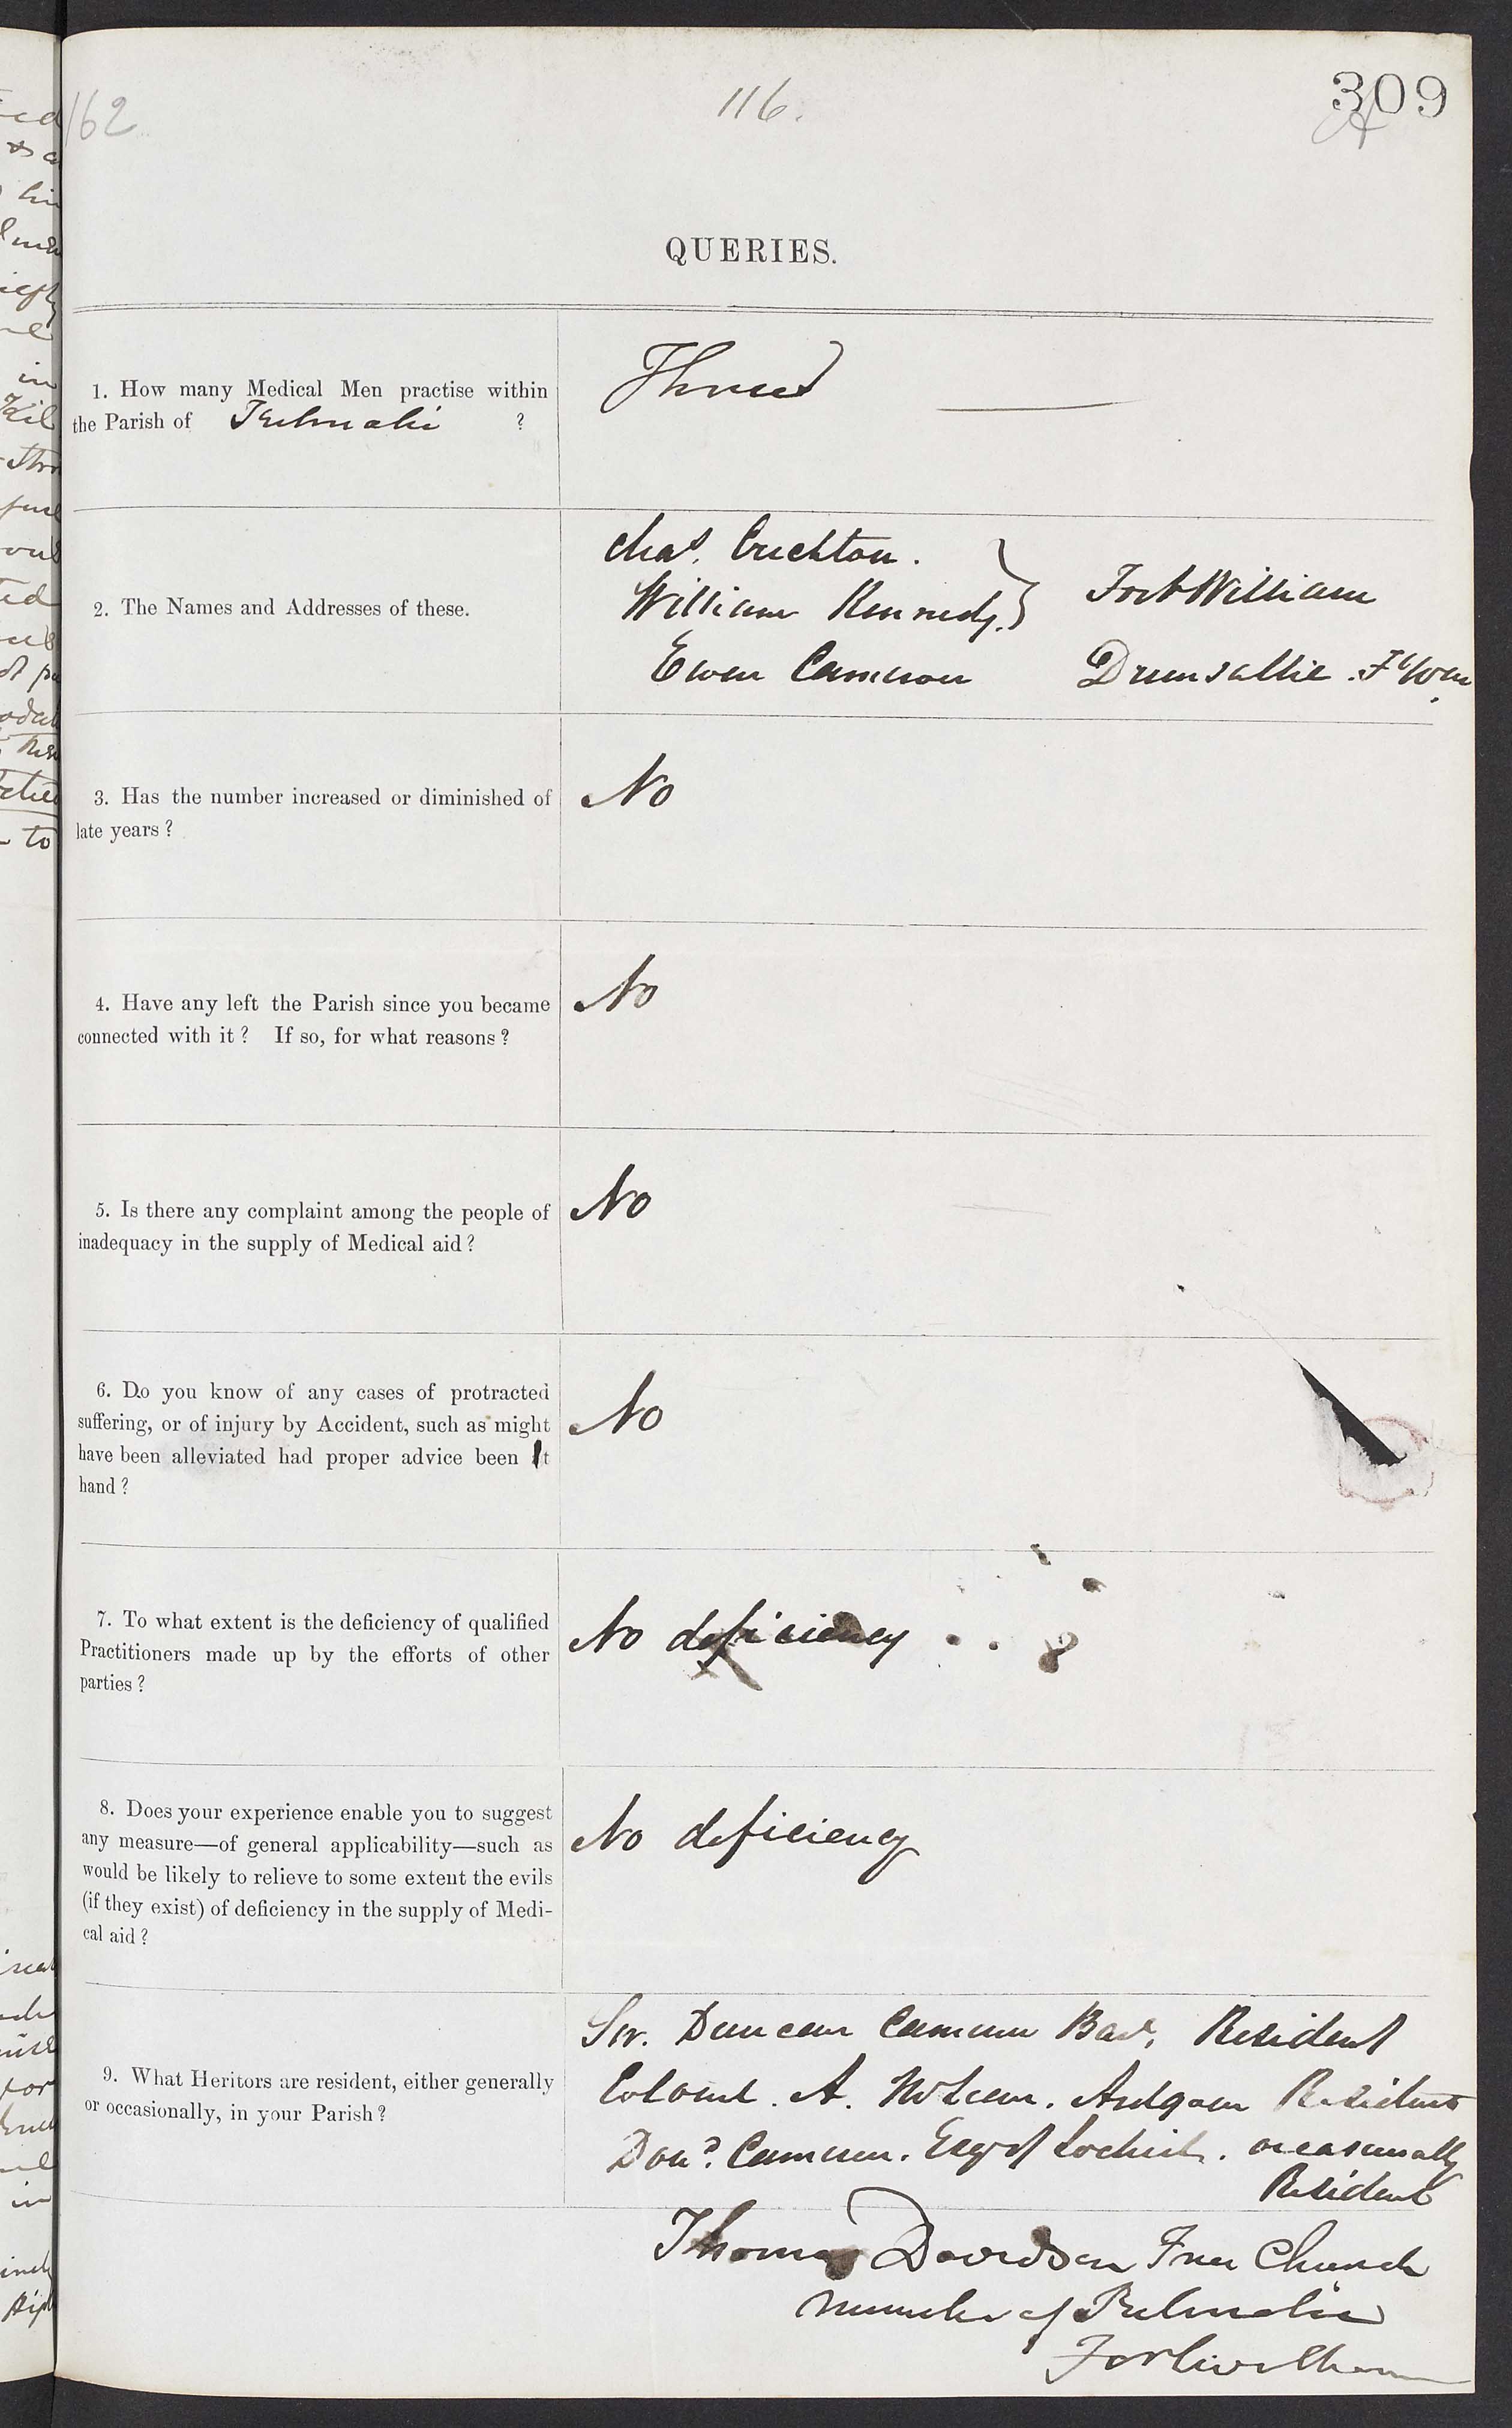 162
116.
309
QUERIES.
1. How many Medical Men practise within
the Parish of Kilmalie ?
Three
2. The Names and Addresses of these.
Chas. Crichton.
William Kennedy. } Fort William
Ewen Cameron Drumsallie. Ft Wm
3. Has the number increased or diminished of
late years?
No
4. Have any left the Parish since you became
connected with it? If so, for what reasons?
No
5. Is there any complaint among the people of
inadequacy in the supply of Medical aid?
No
6. Do you know of any cases of protracted
suffering, or of injury by Accident, such as might
have been alleviated had proper advice been at
hand?
No
7. To what extent is the deficiency of qualified
Practitioners made up by the efforts of other
parties?
No deficiency
8. Does your experience enable you to suggest
any measure—of general applicability—such as
would be likely to relieve to some extent the evils
(if they exist) of deficiency in the supply of Medi-
cal aid?
No deficiency
9. What Heritors are resident, either generally
or occasionally, in your Parish?
Sir. Duncan Cameron Bart. Resident
Colonel. A. McLean. Ardgour Resident
Don. Cameron. Esqr of Locheil. occasionally
Resident
Thomas Davidson Free Church
Minister of Kilmalie
Fortwilliam